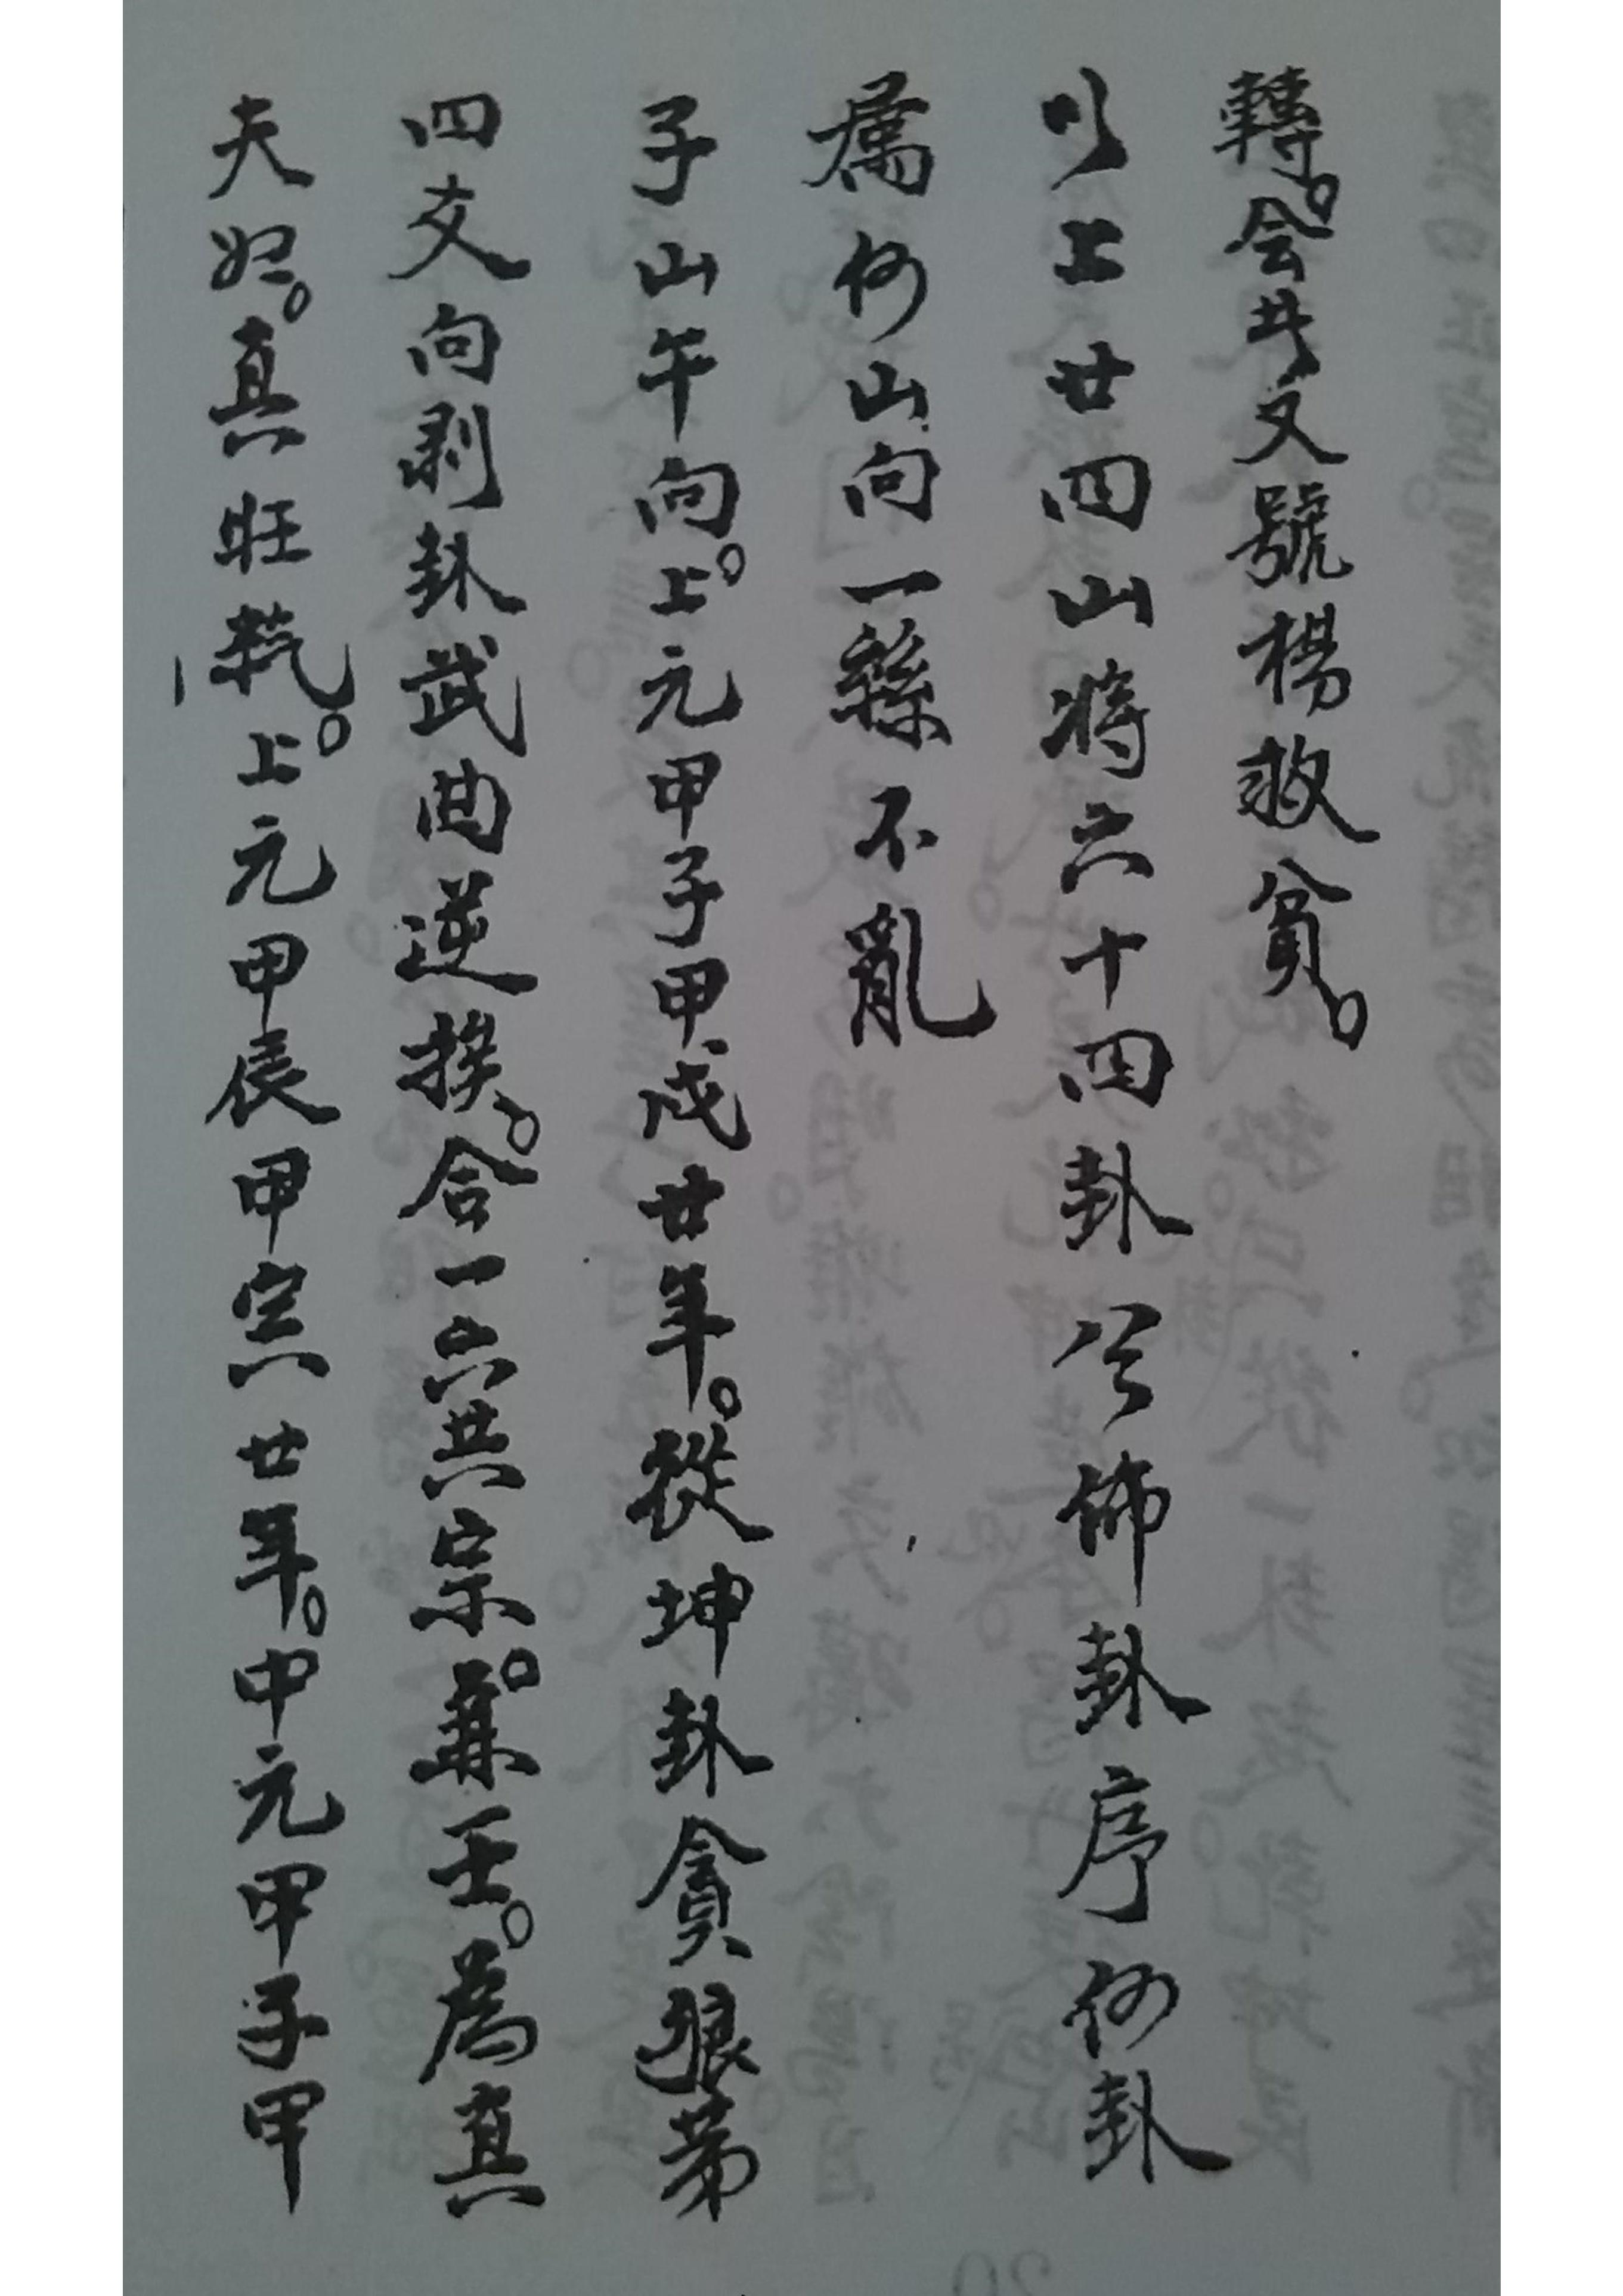 轉。会此又號楊救貧。
以上廿四山將六十四卦分佈卦序何卦
屬何山向一絲不亂
子山午向。上元甲子甲戌廿年。從坤卦貪狼第
四爻向剥卦武曲逆挨。合一六共宗。兼壬。為真
夫妇。真旺氣。上元甲辰甲寅廿年。中元甲子甲